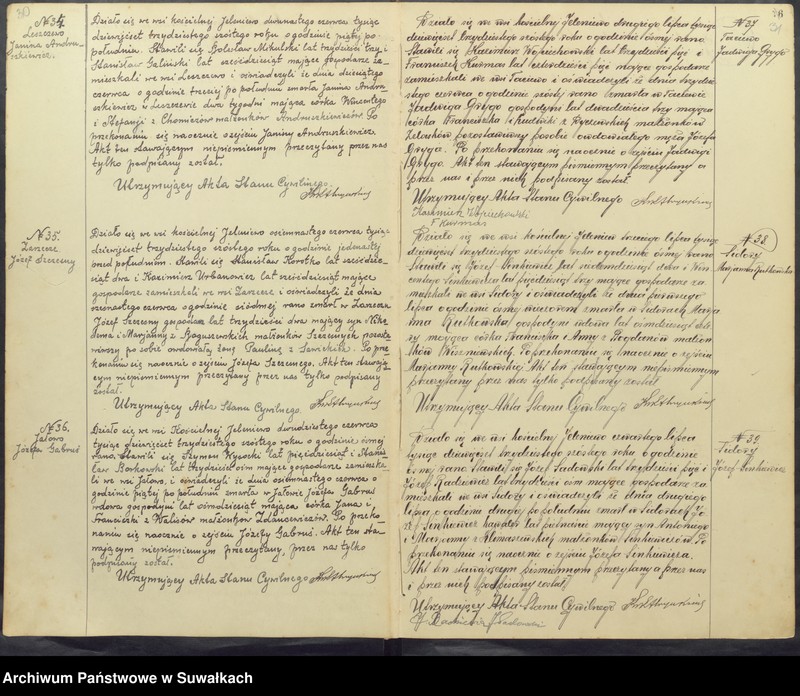 30
N 34.
Leszczewo
Janina Andru-
szkiewicz.
Działo się we wsi kościelnej Jeleniewo dwunastego czerwca tysiąc
dziewięćset trzydziestego szóstego roku o godzinie piątej po
południu. Stawili się Bolesław Mikulski lat trzydzieści trzy i
Stanisław Galiński lat sześćdziesiąt mające gospodarze za-
mieszkali we wsi Leszczewo i oświadczyli że dnia dziesiątego
czerwca o godzinie trzeciej po południu zmarła Janina Andru-
szkiewicz w Leszczewie dwa tygodni mająca córka Wincentego
i Stefanji z małżonków Andruszkiewiczów. Po
przekonaniu się naocznie o zejściu Janiny Andruszkiewicz.
Akt ten stawającym niepiśmiennym przeczytany przez nas
tylko podpisany został.
Utrzymujący Akta Stanu Cywilnego.
N 35.
Zarzecze
Józef Szczesny
Działo się we wsi kościelnej Jeleniewo osiemnastego czerwca tysiąc
dziewięćset trzydziestego szóstego roku o godzinie jedenastej
przed południem. Stawili się Stanisław Korotko lat sześćdzie-
siąt dwa i Kazimierz Urbanowicz lat sześćdziesiąt mające
gospodarze zamieszkali we wsi Zarzecze i oświadczyli że dnia
szesnastego czerwca o godzinie siódmej rano zmarł w Zarzeczu
Józef Szczesny gospodarz lat trzydzieści dwa mający syn Niko-
dema i Marjanny z Boguszewskich małżonków Szczesnych pozosta-
wiwszy po sobie owdowiałą żonę Paulinę z Sawickich. Po prze-
konaniu się naocznie o zejściu Józefa Szczesnego. Akt ten stawają-
cym niepiśmiennym przeczytany przez nas tylko podpisany
został.
Utrzymujący Akta Stanu Cywilnego.
N 36.
Jałowo
Józefa Gabruś
Działo się we wsi Kościelnej Jeleniewo dwudziestego czerwca
tysiąc dziewięćset trzydziestego szóstego roku o godzinie ósmej
rano. Stawili się Szymon Wysocki lat pięćdziesiąt i Stani-
sław Borkowski lat trzydzieści osiem mające gospodarze zamieszka-
li we wsi Jałowo, i oświadczyli że dnia osiemnastego czerwca o
godzinie piątej po południu zmarła w Jałowie Józefa Gabruś
wdowa gospodyni lat ośmdziesiąt mająca córka Jana i
Franciszki z małżonków. Po przeko-
naniu się naocznie o zejściu Józefy Gabruś. Akt ten sta-
wającym niepiśmiennym przeczytany, przez nas tylko
podpisany został.
Utrzymujący Akta Stanu Cywilnego
31
N 37
Jadwiga Gryga
Działo się we wsi kościelnej Jeleniewo drugiego lipca tysiąc
dziewięćset trzydziestego szóstego roku o godzinie ósmej rano
Stawili się Kazimierz Wojciechowski lat trzydzieści pięć i
Franciszek Kuźman lat czterdzieści pięć mający gospodarze
zamieszkali we wsi i oświadczyli, że dnia trzydzie-
stego czerwca o godzinie szóstej rano zmarła w
Jadwiga Gryga gospodyni lat dwadzieścia trzy mająca
córka Franciszka i małżonków
pozostawiwszy po sobie owdowiałego męża Józefa
Gryga. Po przekonaniu się naocznie o zejściu Jadwigi
Grygo. Akt ten stawającym piśmiennym przeczytany a
przez nas i przez nich podpisany został.
Utrzymujący Akta Stanu Cywilnego
Kazimierz Wojciechowski
F Kuźman
N 38
Sidory
Marjanna Rutkowska
Działo się we wsi kościelnej Jeleniewo trzeciego lipca tysiąc
dziewięćset trzydziestego szóstego roku o godzinie ósmej rano
Stawili się Józef lat siedemdziesiąt dwa i Win-
centy lat pięćdziesiąt trzy mające gospodarze za-
mieszkali we wsi Sidory i oświadczyli że dnia pierwszego
lipca o godzinie ósmej wieczorem zmarła w Sidorach Marja-
nna Rutkowska gospodyni wdowa lat ośmdziesiąt
mająca córka Franciszka i Anny z małżon-
ków. Po przekonaniu się naocznie o zejściu
Marjanny Rutkowskiej. Akt ten stawającym niepiśmiennym
przeczytany przez nas tylko podpisany został
Utrzymujący Akta Stanu Cywilnego
N 39
Sidory
Józef
Działo się we wsi kościelnej Jeleniewo czwartego lipca
tysiąc dziewięćset trzydziestego szóstego roku o godzinie
ósmej rano Stawili się Józef Sadowski lat trzydzieści pięć i
Józef Radziewicz lat trzydzieści ośm mające gospodarze za-
mieszkali we wsi Sidory i oświadczyli że dnia drugiego
lipca o godzinie drugiej po południu zmarł w Sidorach Jó-
zef kawaler lat piętnaście mający syn Antoniego
i Marjanny z małżonków. Po
przekonaniu się naocznie o zejściu Józefa
Akt ten stawającym piśmiennym przeczytany a przez nas
i przez nich podpisany został
Utrzymujący Akta Stanu Cywilnego
J. Sadowski
Archiwum Państwowe w Suwałkach